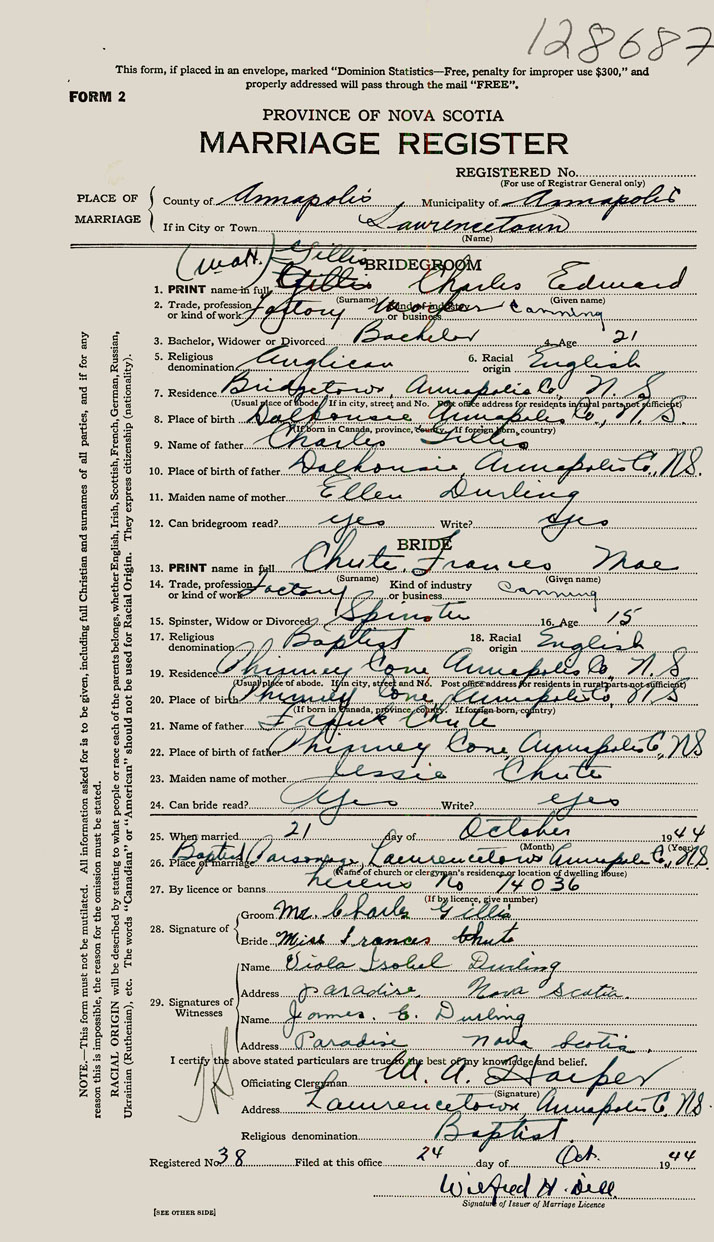 128687
This form, if placed in an envelope, marked "Dominion Statistics—Free, penalty for improper use $300," and
properly addressed will pass through the mail "FREE".
FORM 2
PROVINCE OF NOVA SCOTIA
MARRIAGE REGISTER
REGISTERED No.
(For use of Registrar General only)
PLACE OF MARRIAGE
County of Annapolis Municipality of Annapolis
If in City or Town Lawrencetown
(Name)
Gillis
BRIDEGROOM
1. PRINT name in full Gillis Charles Edward
(Surname) (Given name)
2. Trade, profession or kind of work Factory Worker Kind of industry or business Canning
3. Bachelor, Widower or Divorced Bachelor 4. Age 21
5. Religious denomination Anglican 6. Racial origin English
7. Residence Bridgetown, Annapolis Co., N S
(Usual place of abode. If in city, street and No. Post office address for residents in rural parts not sufficient)
8. Place of birth Dalhousie Annapolis Co., N. S.
(If born in Canada, province, county. If foreign born, country)
9. Name of father Charles Gillis
10. Place of birth of father Dalhousie, Annapolis Co., N.S.
11. Maiden name of mother Ellen Durling
12. Can bridegroom read? yes Write? yes
BRIDE
13. PRINT name in full Chute, Frances Mae
(Surname) (Given name)
14. Trade, profession or kind of work Factory Kind of industry or business Canning
15. Spinster, Widow or Divorced Spinster 16. Age 15
17. Religious denomination Baptist 18. Racial origin English
19. Residence Phinney Cove Annapolis Co, N S
(Usual place of abode. If in city, street and No. Post office address for residents in rural parts not sufficient)
20. Place of birth Phinney Cove, Annapolis Co, N S
(If born in Canada, province, county. If foreign born, country)
21. Name of father Frank Chute
22. Place of birth of father Phinney Cove, Annapolis Co, NS
23. Maiden name of mother Jessie Chute
24. Can bride read? Yes Write? yes
25. When married 21 day of October 1944
(Month) (Year)
26. Place of marriage Baptist Parsonage, Lawrencetown Annapolis Co., N.S.
(Name of church or clergyman's residence or location of dwelling house)
27. By licence or banns No 14036
(If by licence, give number)
28. Signature of
Groom Mr. Charles Gillis
Bride Miss Frances Chute
29. Signatures of Witnesses
Name Viola Isobel Durling
Address Paradise, Nova Scotia.
Name James E. Durling
Address Paradise Nova Scotia,
I certify the above stated particulars are true to the best of my knowledge and belief.
Officiating Clergyman M. A. Harper
(Signature)
Address Lawrencetown, Annapolis Co. N.S.
Religious denomination Baptist
Registered No. 38 Filed at this office 24 day of Oct. 1944
Wilfred H. Dill
Signature of Issuer of Marriage Licence
[SEE OTHER SIDE]
NOTE.—This form must not be mutilated. All information asked for is to be given, including full Christian and surnames of all parties, and if for any
reason this is impossible, the reason for the omission must be stated.
RACIAL ORIGIN will be described by stating to what people or race each of the parents belongs, whether English, Irish, Scottish, French, German, Russian,
Ukrainian (Ruthenian), etc. The words "Canadian" or "American" should not be used for Racial Origin. They express citizenship (nationality).